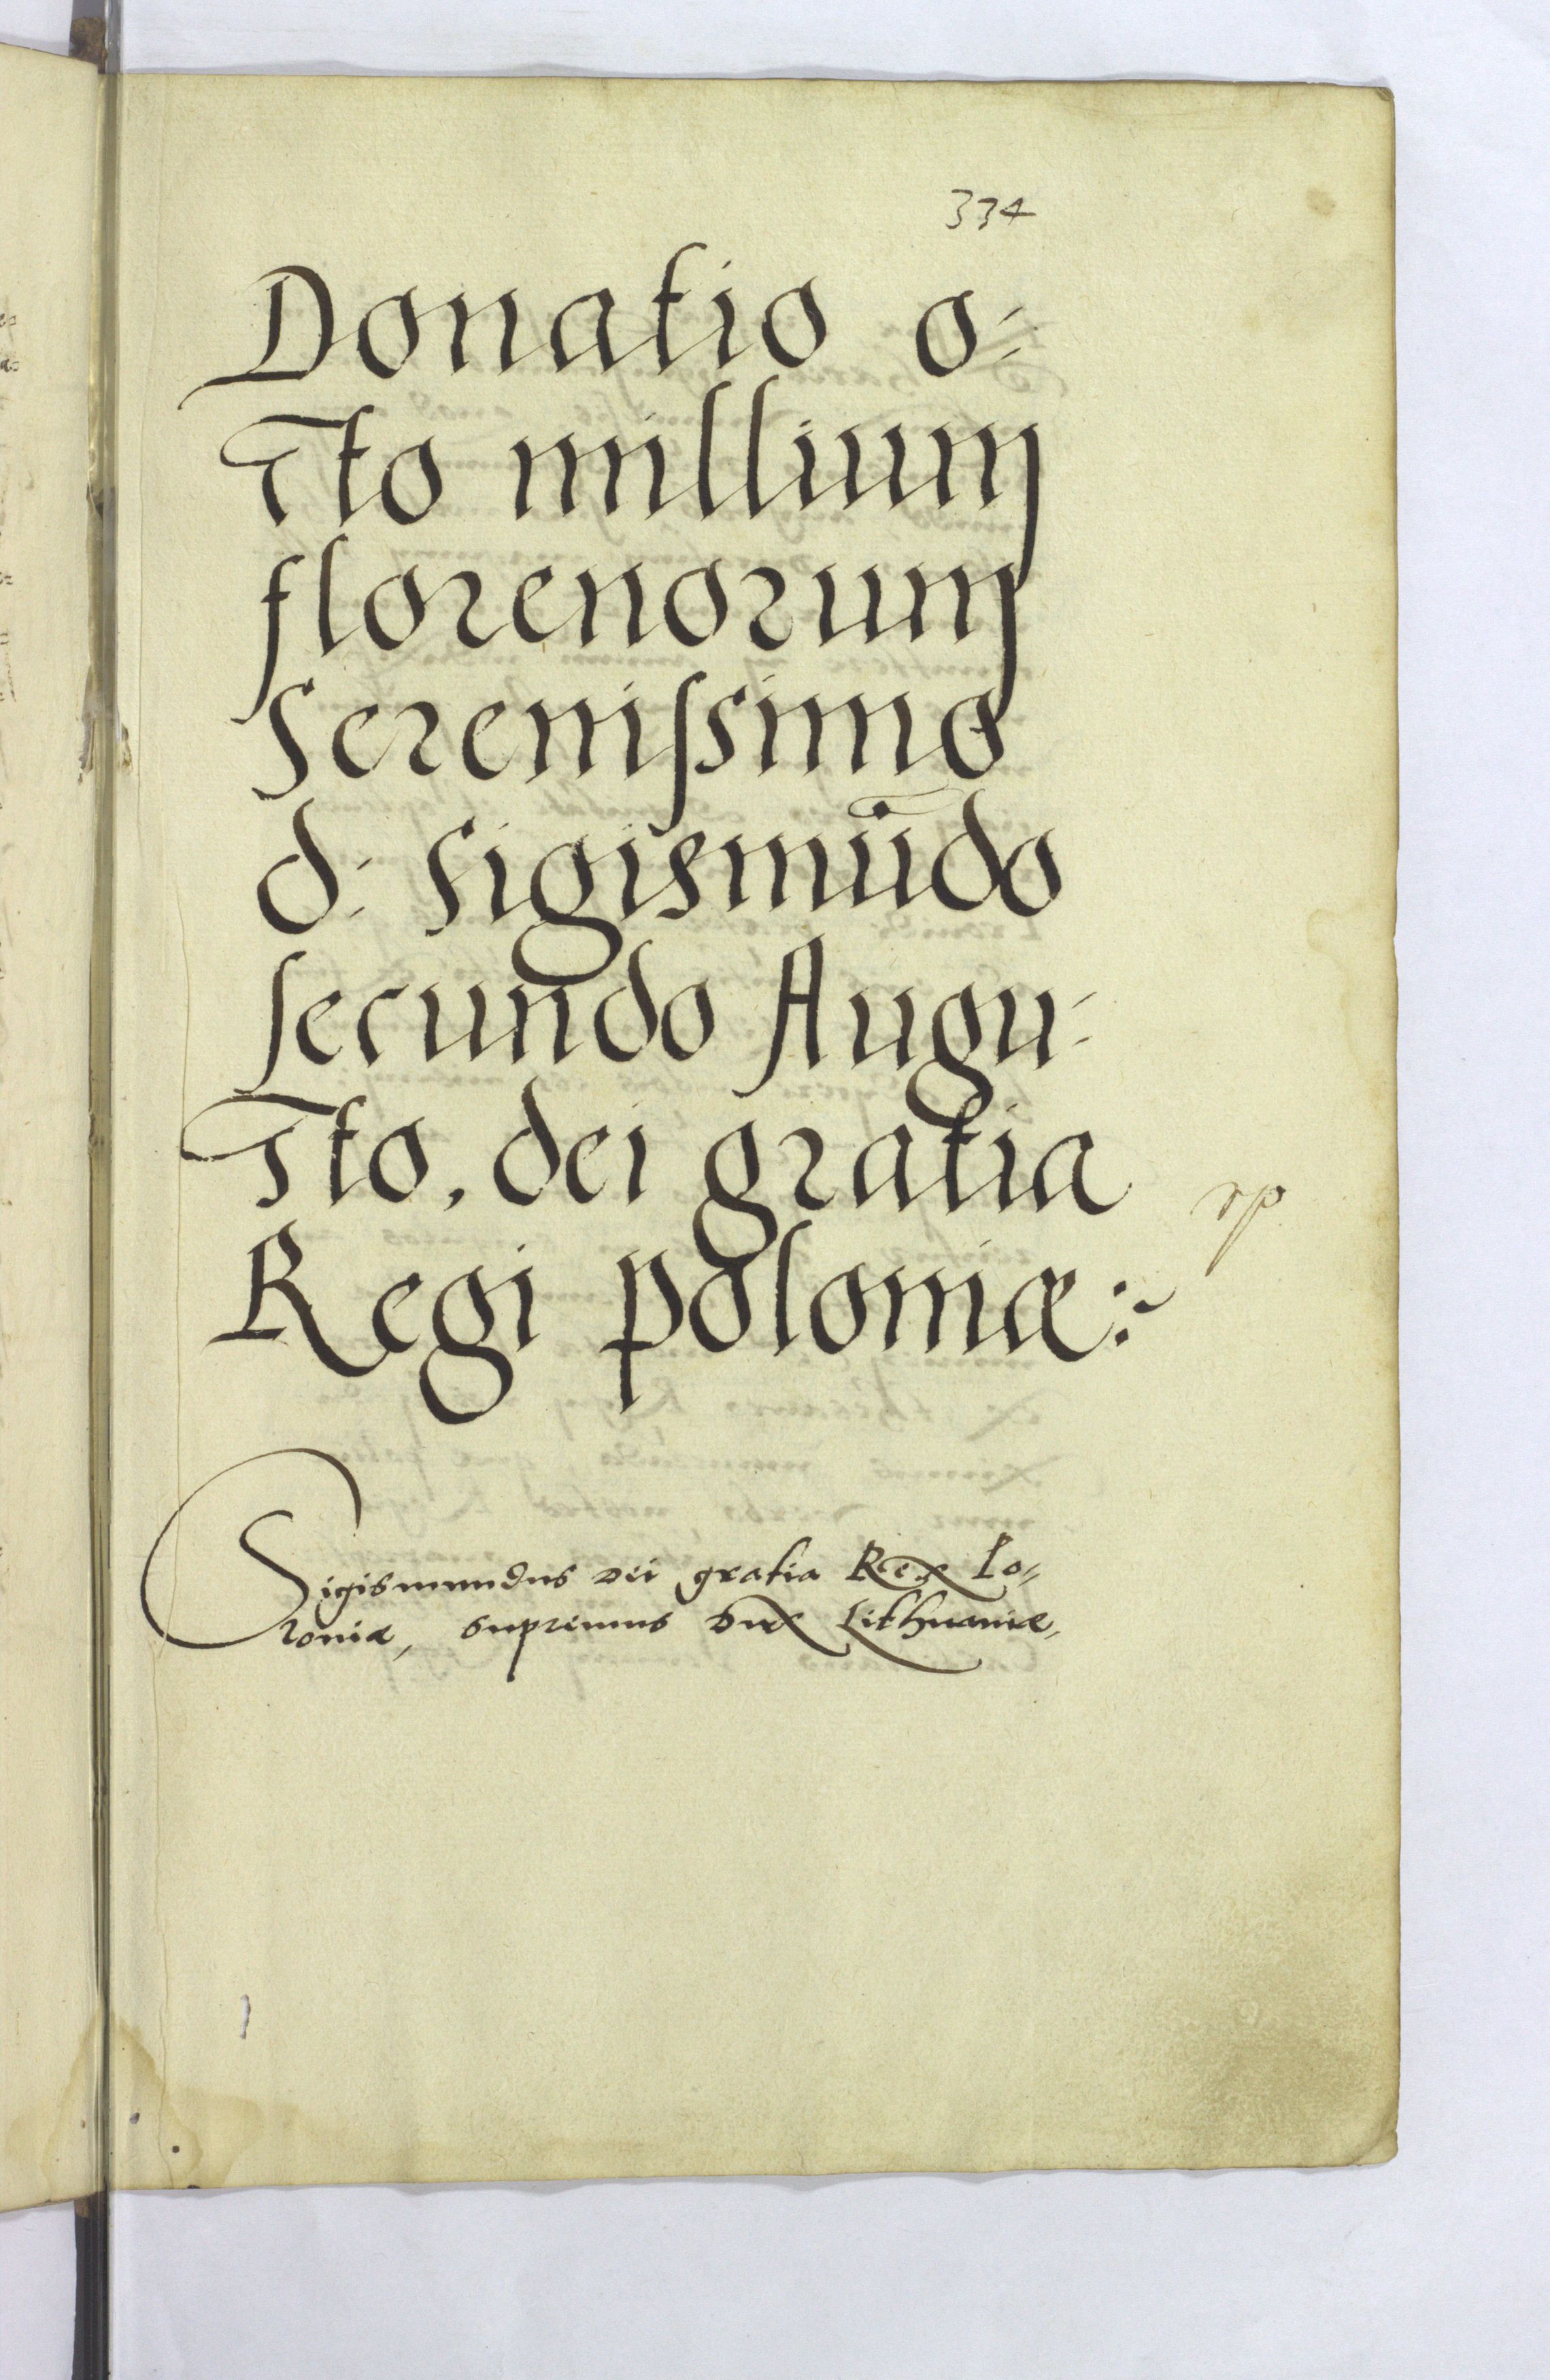 334
Donatio o-
cto millium
florenorum
Serenissimo
d: Sigismūdo
secundo Augu-
sto, dei gratia
Regi poloniæ:~
Sigismundus Dei gratia Rex Po-
loniæ, supremus Dux Lithuaniæ,